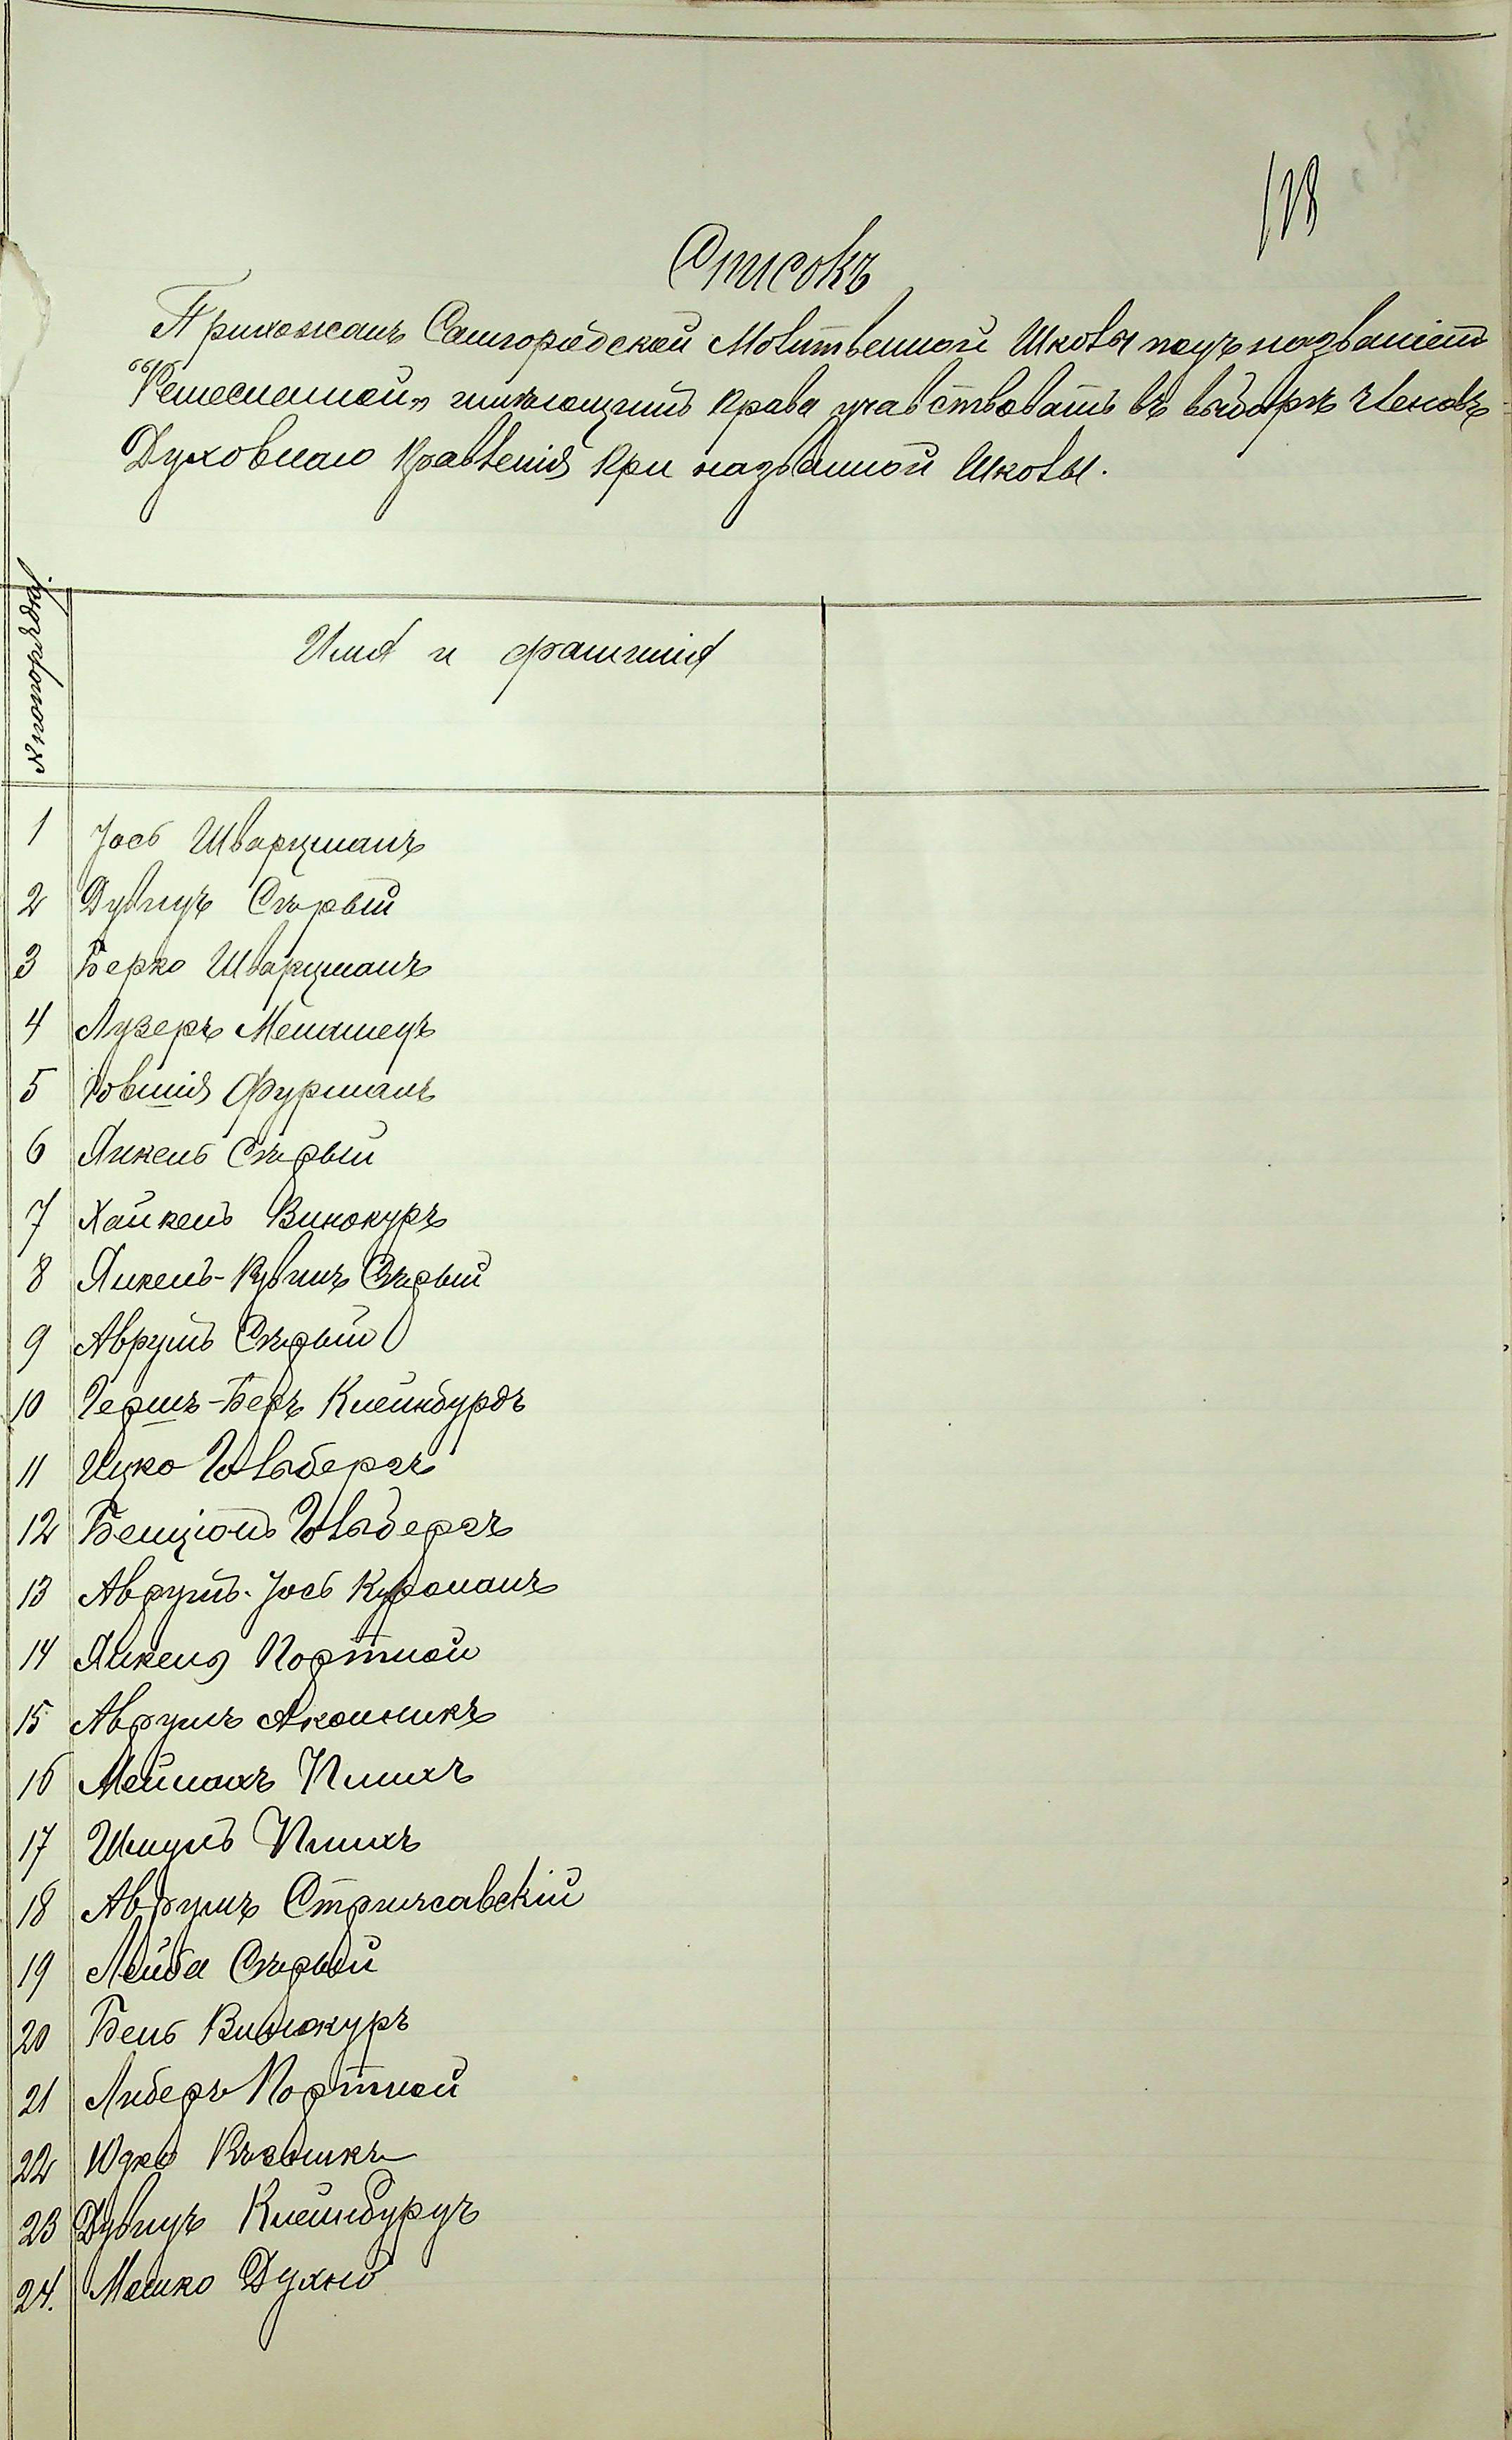 128
Списокъ
Прихожанъ Самгородской Молитвенной Школы подъ названіемъ
"Ремесленной" имѣющимъ права учавствовать въ выборѣ членовъ
Духовнаго правленія при названной Школы.
№ по порядку.
Имя и фамилія
1 Іось Шварцманъ
2 Дувидъ Сѣрый
3 Берко Шварцманъ
4 Лузеръ Меламедъ
5 Фурманъ
6 Янкель Сѣрый
7 Хайкель Винокуръ
8 Янкель-Рувинъ Сѣрый
9 Аврумъ Сѣрый
10 Гершъ-Беръ Клейнбурдъ
11 Ицко Гольбергъ
12 Бенціонъ Гольбергъ
13 Аврумъ-Іось
14 Янкель Портной
15 Аврумъ
16
17 Шмуль
18 Аврумъ Стрижавскій
19 Лейба Сѣрый
20 Бень Винокуръ
21 Либеръ Портной
22 Юдко
23 Дувидъ Клейнбурдъ
24. Мошко Духно